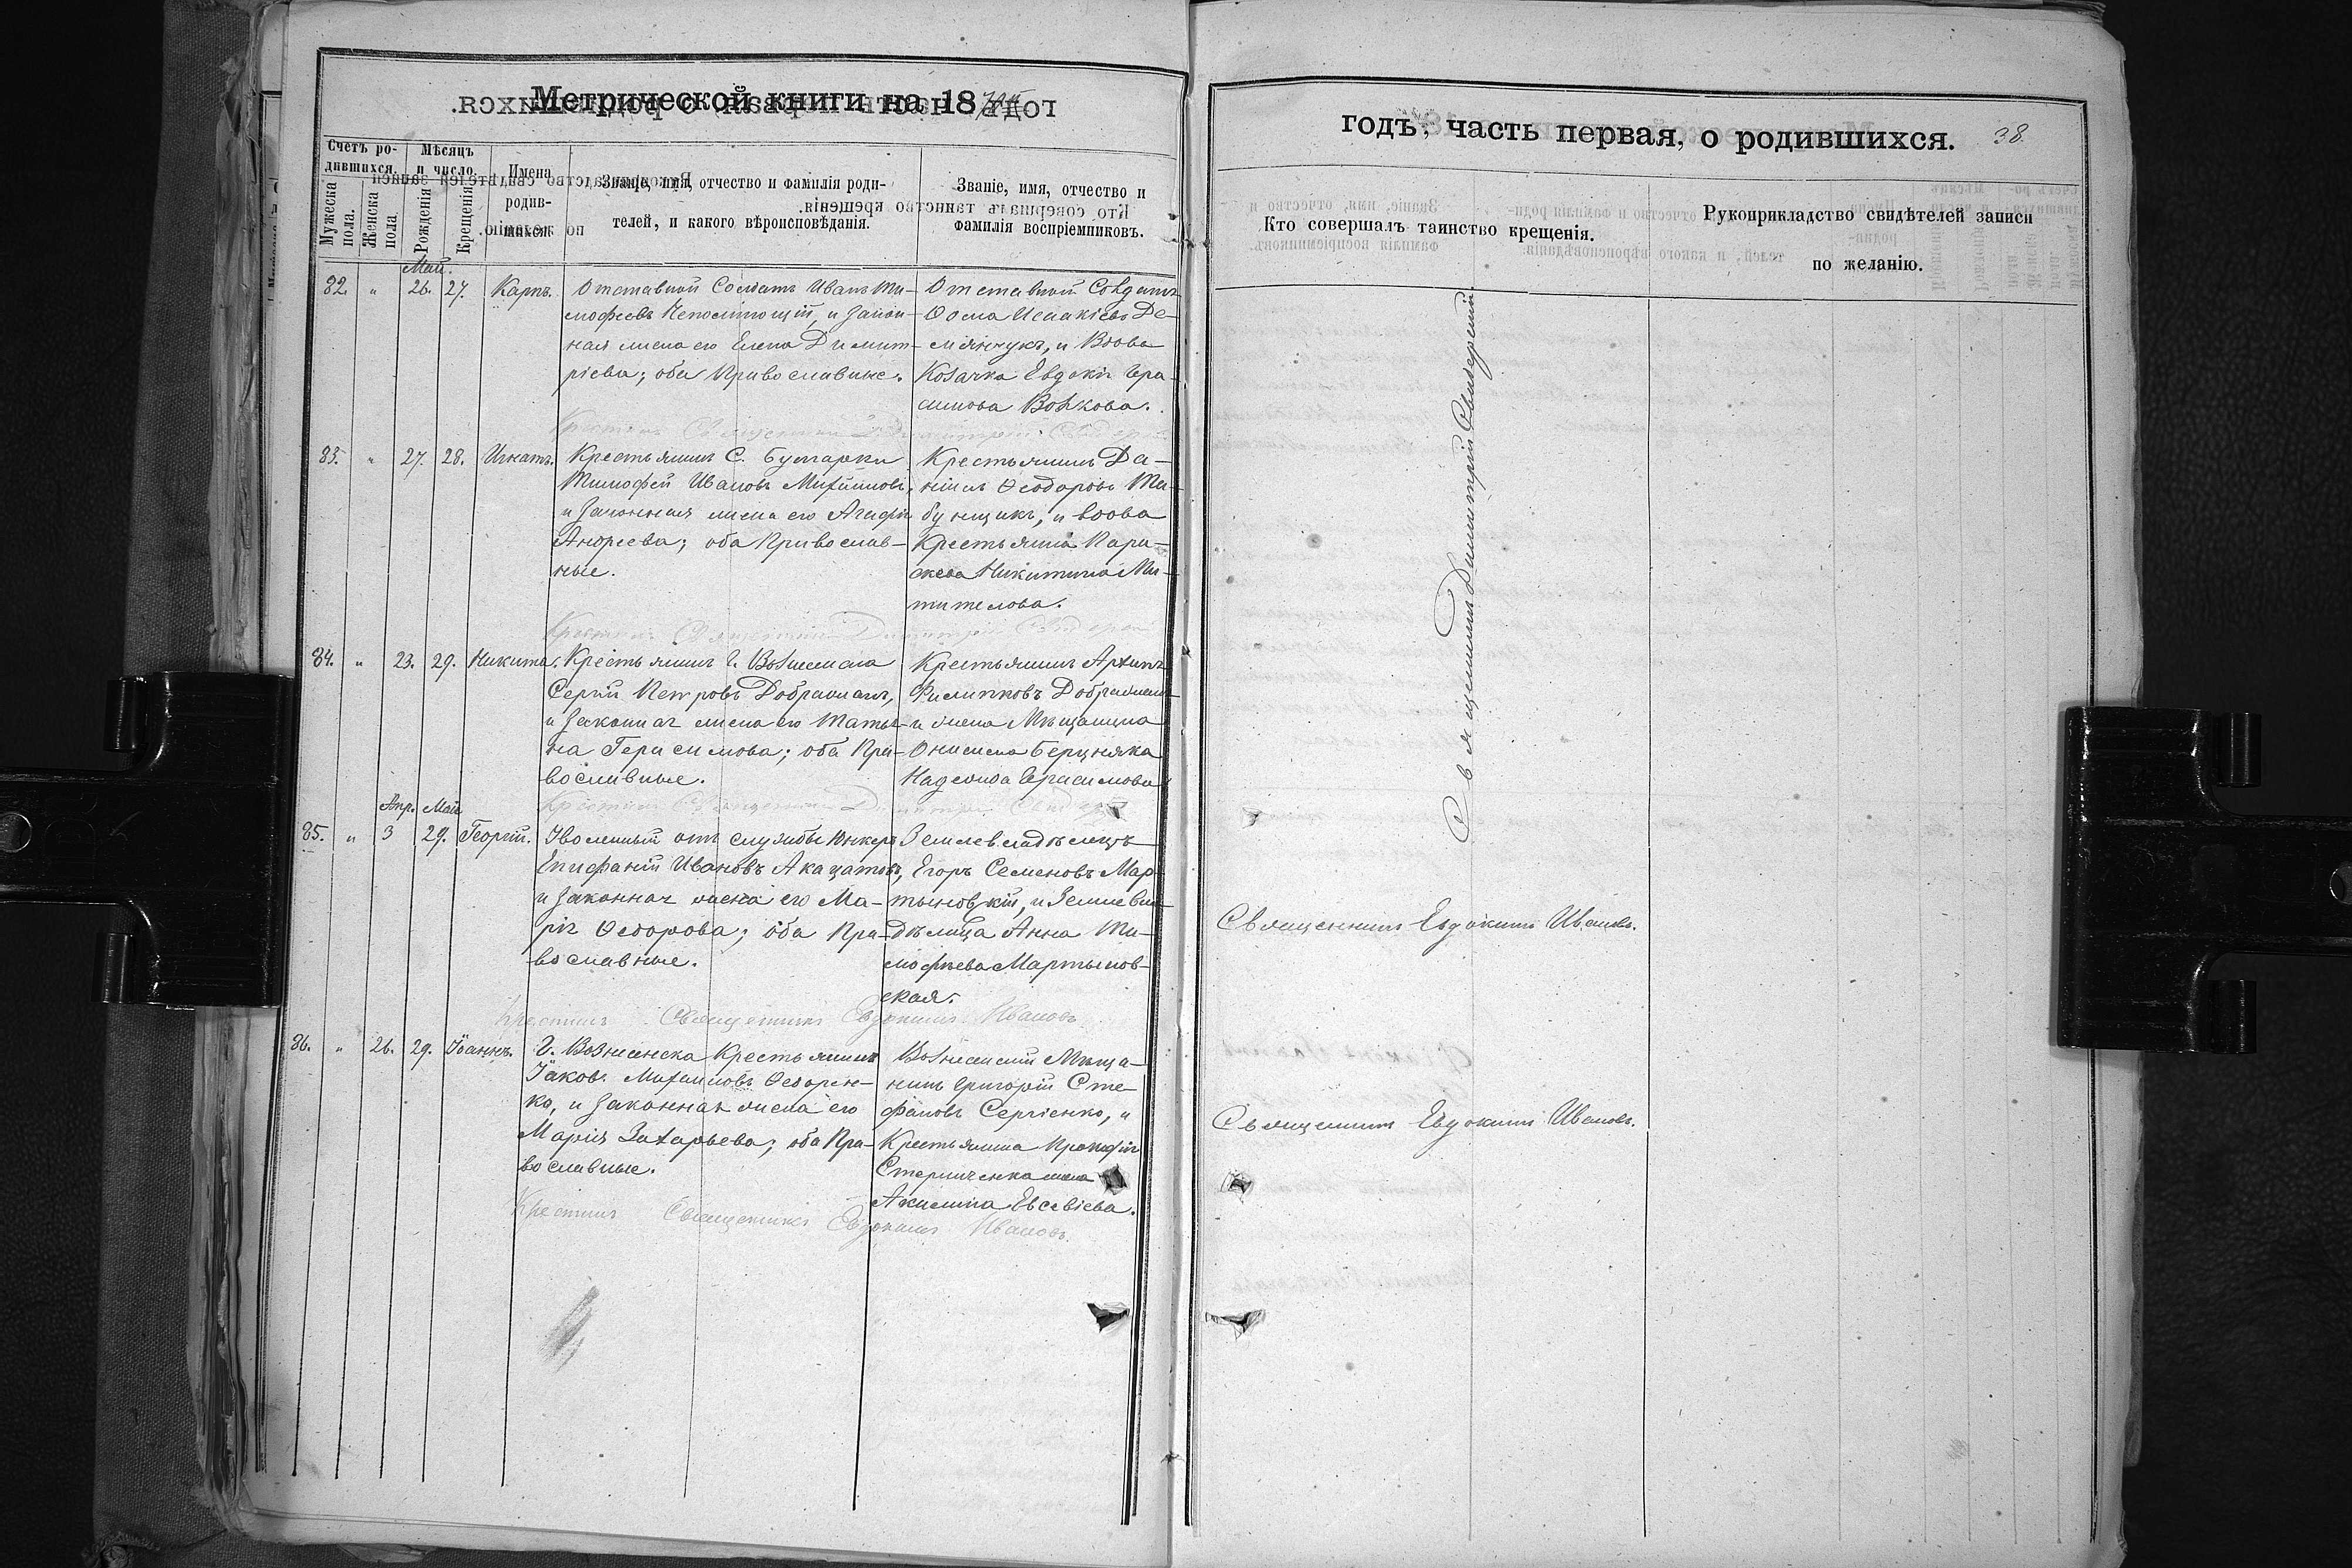 Метрической книги на 18
Счетъ ро-
дившихся.
Мѣсяцъ
и число.
Мужеска пола.
Женска пола.
Рожденія
Крещенія
Имена
родив-
шихся.
Званіе, имя, отчество и фамилія роди-
телей, и какого вѣроисповѣданія.
Званіе, имя, отчество и
фамилія воспріемниковъ.
Май.
82. " 26. 27. Карпъ.
Отставной Солдатъ Иванъ Ти-
мофеевъ и Закон-
ная жена его Елена Димит-
ріева; оба Православные.
Отставной Солдатъ
Ѳома Исакіевъ Де-
міянчукъ, и Вдова
Козачка Евдокія Гера-
симова Волкова.
Крестилъ Священникъ Димитрій
83. " 27. 28. Игнатъ.
Крестьянинъ С. Булгарки
Тимофей Ивановъ Михайловъ,
и Законная жена его Агафія
Андреева; оба Православ-
ные.
Крестьянинъ Да-
ніилъ Ѳеодоровъ Та-
бунщикъ, и вдова
Крестьянка Пара-
скева Никитина Ми-
тителова.
Крестилъ Священникъ Димитрій
84. " 23. 29. Никита.
Крестьянинъ Г. Вознесенска
Сергій Петровъ Дображанъ,
и Законная жена его Татья-
на Герасимова; оба Пра-
вославные.
Крестьянинъ Архипъ
Филипповъ Дображанъ
и жена Мѣщанина
Онисима Берцняка
Надежда Герасимова
Крестилъ Священникъ Димитрій
Апр. Май
85. " 3 29. Георгій.
Уволенный отъ службы Юнкеръ
Епифаній Ивановъ Акацатовъ,
и Законная жена его Ма-
рія Ѳедорова; оба Пра-
вославные.
Землевладѣлецъ
Егоръ Семеновъ Мар-
тыновскій, и Землевла-
дѣлица Анна Ти-
мофѣева Мартынов-
ская.
Крестилъ Священникъ Евдокимъ Ивановъ
86. " 26. 29. Іоаннъ.
Г. Вознесенска Крестьянинъ
Іаковъ Михайловъ Ѳедорен-
ко, и Законная жена его
Марія Захарьева; оба Пра-
вославные.
Вознесенскій Мѣща-
нинъ Григорій Сте-
фановъ Сергіенко, и
Крестьянина Прокофія
жена
Акилина Евсевіева.
Крестилъ Священникъ Евдокимъ Ивановъ.
годъ, часть первая, о родившихся.
38.
Кто совершалъ таинство крещенія.
Рукоприкладство свидѣтелей записи
по желанію.
Священникъ Димитрій
Священникъ Евдокимъ Ивановъ.
Священникъ Евдокимъ Ивановъ.